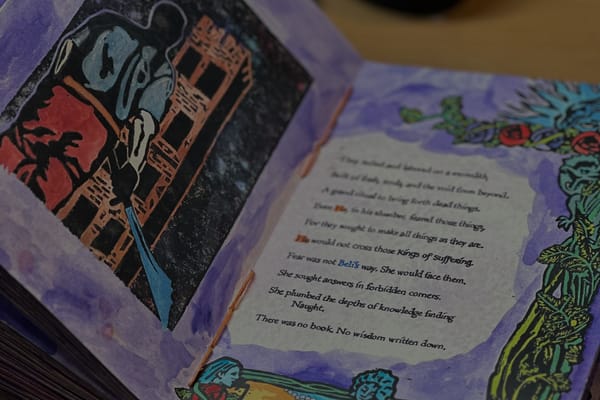 They toiled and labored on a monolith,
Built of flesh, souls, and the void from beyond,
A grand ritual to bring forth dead things.
Even He, in his slumber, feared those things,
For they sought to make all things as they are.
He would not cross those Kings of Suffering.
Fear was not Beli's way. She would face them.
She sought answers in forbidden corners.
She plumbed the depths of knowledge finding
Naught.
There was no book. No wisdom written down,